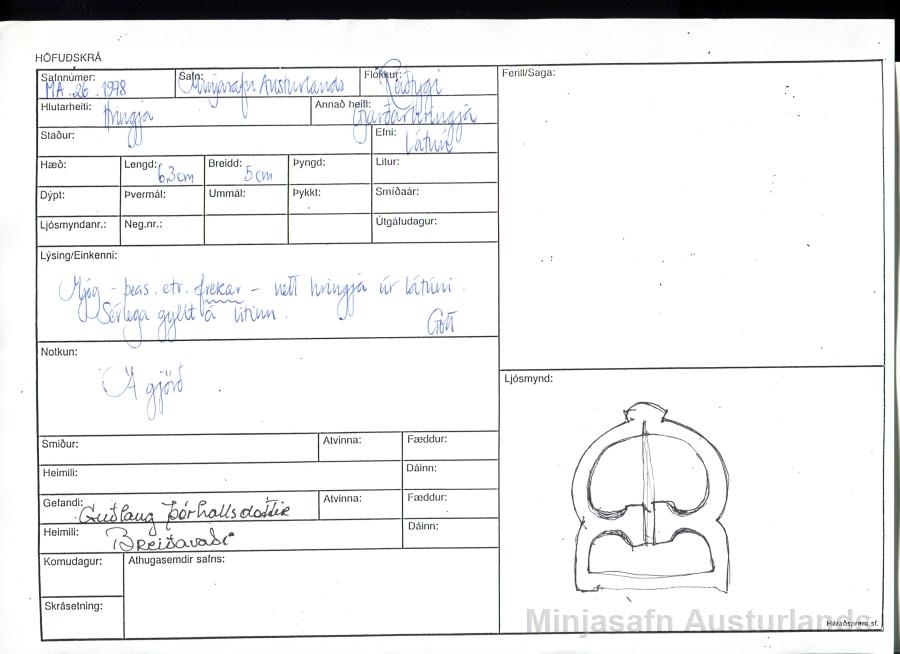 HÖFUÐSKRÁ
Safnnúmer: MA. 26. 1978
Safn: Minjasafn Austurlands
Flokkur: Reiðtygi
Hlutarheiti: Hringja
Annað heiti: Gjarðarhringja
Staður:
Efni: Látún
Hæð:
Lengd: 6,3 cm
Breidd: 5 cm
Þyngd:
Litur:
Dýpt:
Þvermál:
Ummál:
Þykkt:
Smíðaár:
Ljósmyndanr.:
Neg.nr.:
Útgáfudagur:
Lýsing/Einkenni:
Mjög - þeas. etv. frekar - nett hringja úr látúni.
Sérlega gyllt á litinn.
Gott
Notkun:
Á gjörð
Smiður:
Atvinna:
Fæddur:
Heimili:
Dáinn:
Gefandi: Guðlaug Þórhallsdóttir
Atvinna:
Fæddur:
Heimili: Breiðavaði
Dáinn:
Komudagur:
Athugasemdir safns:
Skrásetning:
Ferill/Saga:
Ljósmynd:
Minjasafn Austurlands
Héraðsprent sf.